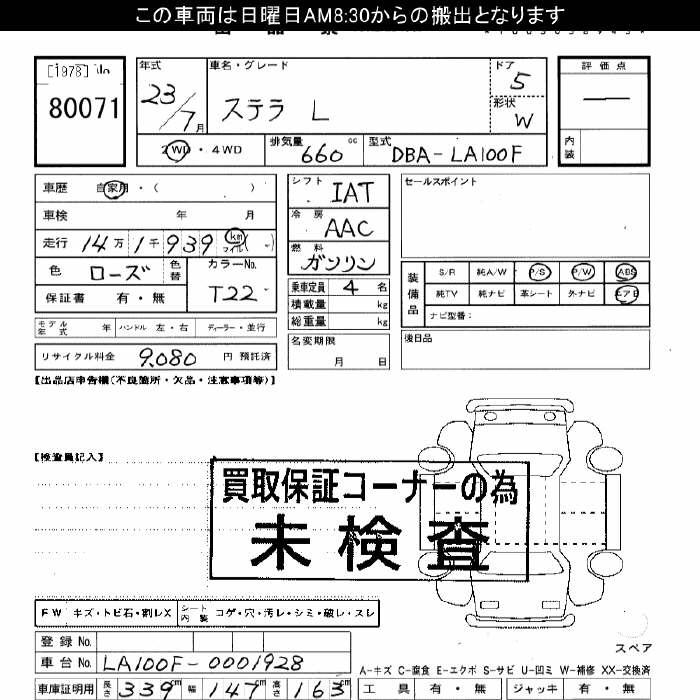 この車両は日曜日AM8:30からの搬出となります
[1978] No
80071
年式
23/7月
車名・グレード
ステラ L
ドア
5
形状
W
評価点
—
内装
2WD・4WD
排気量
660cc
型式
DBA-LA100F
車歴 自家用・( )
車検 年 月
走行 14万1千939 km マイル( )
色 ローズ 色替
カラーNo.
T22
保証書 有・無
モデル年式 年 ハンドル 左・右 ディーラー・並行
リサイクル料金 9,080 円 預託済
シフト IAT
冷房 AAC
燃料 ガソリン
乗車定員 4 名
積載量 kg
総重量 kg
名変期限
月 日
セールスポイント
装備品
S/R 純A/W P/S P/W ABS
純TV 純ナビ 革シート 外ナビ エアB
ナビ型番:
後日品
【出品店申告欄(不良箇所・欠品・注意事項等)】
【検査員記入】
買取保証コーナーの為
未検査
FW キズ・トビ石・割レX
シート内装 コゲ・穴・汚レ・シミ・破レ・スレ
スペア
登録No.
車台No. LA100F-0001928
車庫証明用 長さ 339cm 幅 147cm 高さ 163cm
A-キズ C-腐食 E-エクボ S-サビ U-凹ミ W-補修 XX-交換済
工具 有・無 ジャッキ 有・無